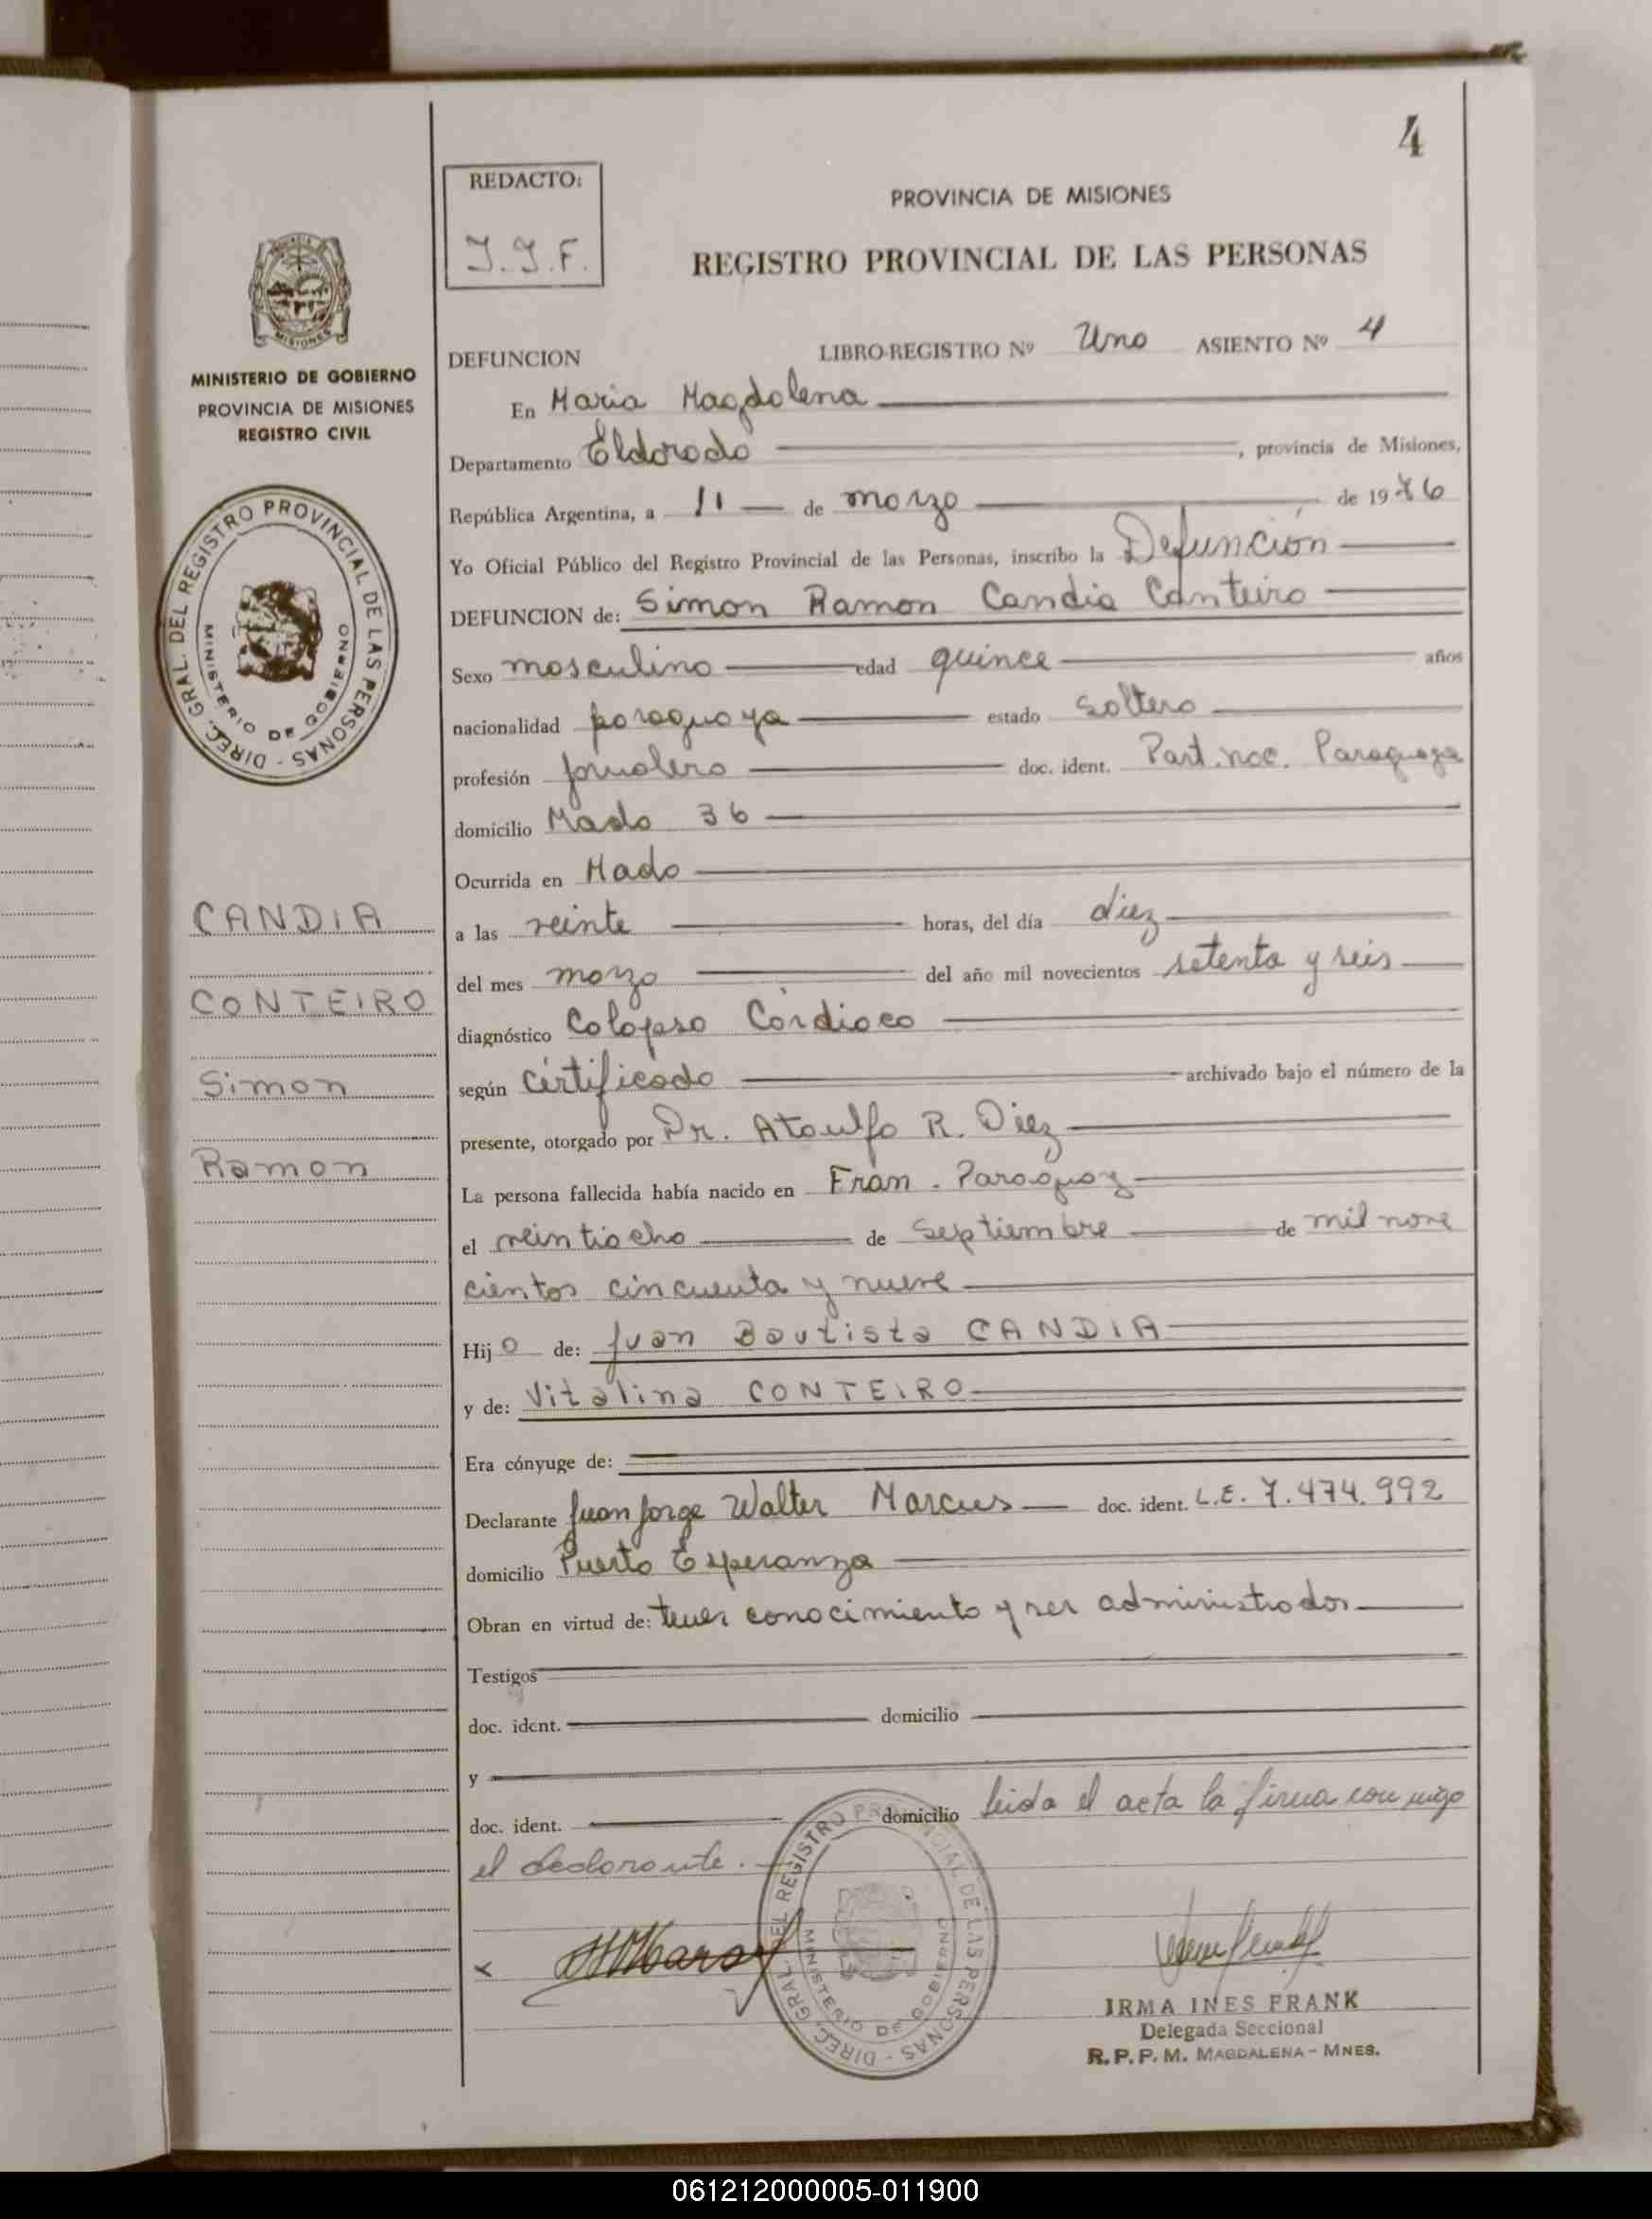 4
REDACTO:
I.I.F.
PROVINCIA DE MISIONES
REGISTRO PROVINCIAL DE LAS PERSONAS
MISIONES
MINISTERIO DE GOBIERNO
PROVINCIA DE MISIONES
REGISTRO CIVIL
DIREC. GRAL. DEL REGISTRO PROVINCIAL DE LAS PERSONAS -
MINISTERIO DE GOBIERNO
CANDIA
CONTEIRO
Simon
Ramon
DEFUNCION LIBRO-REGISTRO Nº Uno ASIENTO Nº 4
En Maria Magdalena
Departamento Eldorado, provincia de Misiones,
República Argentina, a 11 de marzo de 1976
Yo Oficial Público del Registro Provincial de las Personas, inscribo la Defunción
DEFUNCION de: Simon Ramon Candia Conteiro
Sexo masculino edad quince años
nacionalidad paraguaya estado soltero
profesión jornalero doc. ident. Part. nac. Paraguaya
domicilio Mado 36
Ocurrida en Mado
a las veinte horas, del día diez
del mes marzo del año mil novecientos setenta y seis
diagnóstico Colapso Cardiaco
según Certificado archivado bajo el número de la
presente, otorgado por Dr. Ataulfo R. Diez
La persona fallecida había nacido en Fran - Paraguay
el veintiocho de septiembre de mil nove
cientos cincuenta y nueve
Hijo de: Juan Bautista CANDIA
y de: Vitalina CONTEIRO
Era cónyuge de:
Declarante Juan Jorge Walter Marcus doc. ident. L.E. 7.474.992
domicilio Puerto Esperanza
Obran en virtud de: tener conocimiento y ser administrador
Testigos
doc. ident. domicilio
y
doc. ident. domicilio leida el acta la firma conmigo
el declarante.
DIREC. GRAL. DEL REGISTRO PROVINCIAL DE LAS PERSONAS -
MINISTERIO DE GOBIERNO
IRMA INES FRANK
Delegada Seccional
R.P.P.M. MAGDALENA - MNES.
061212000005-011900